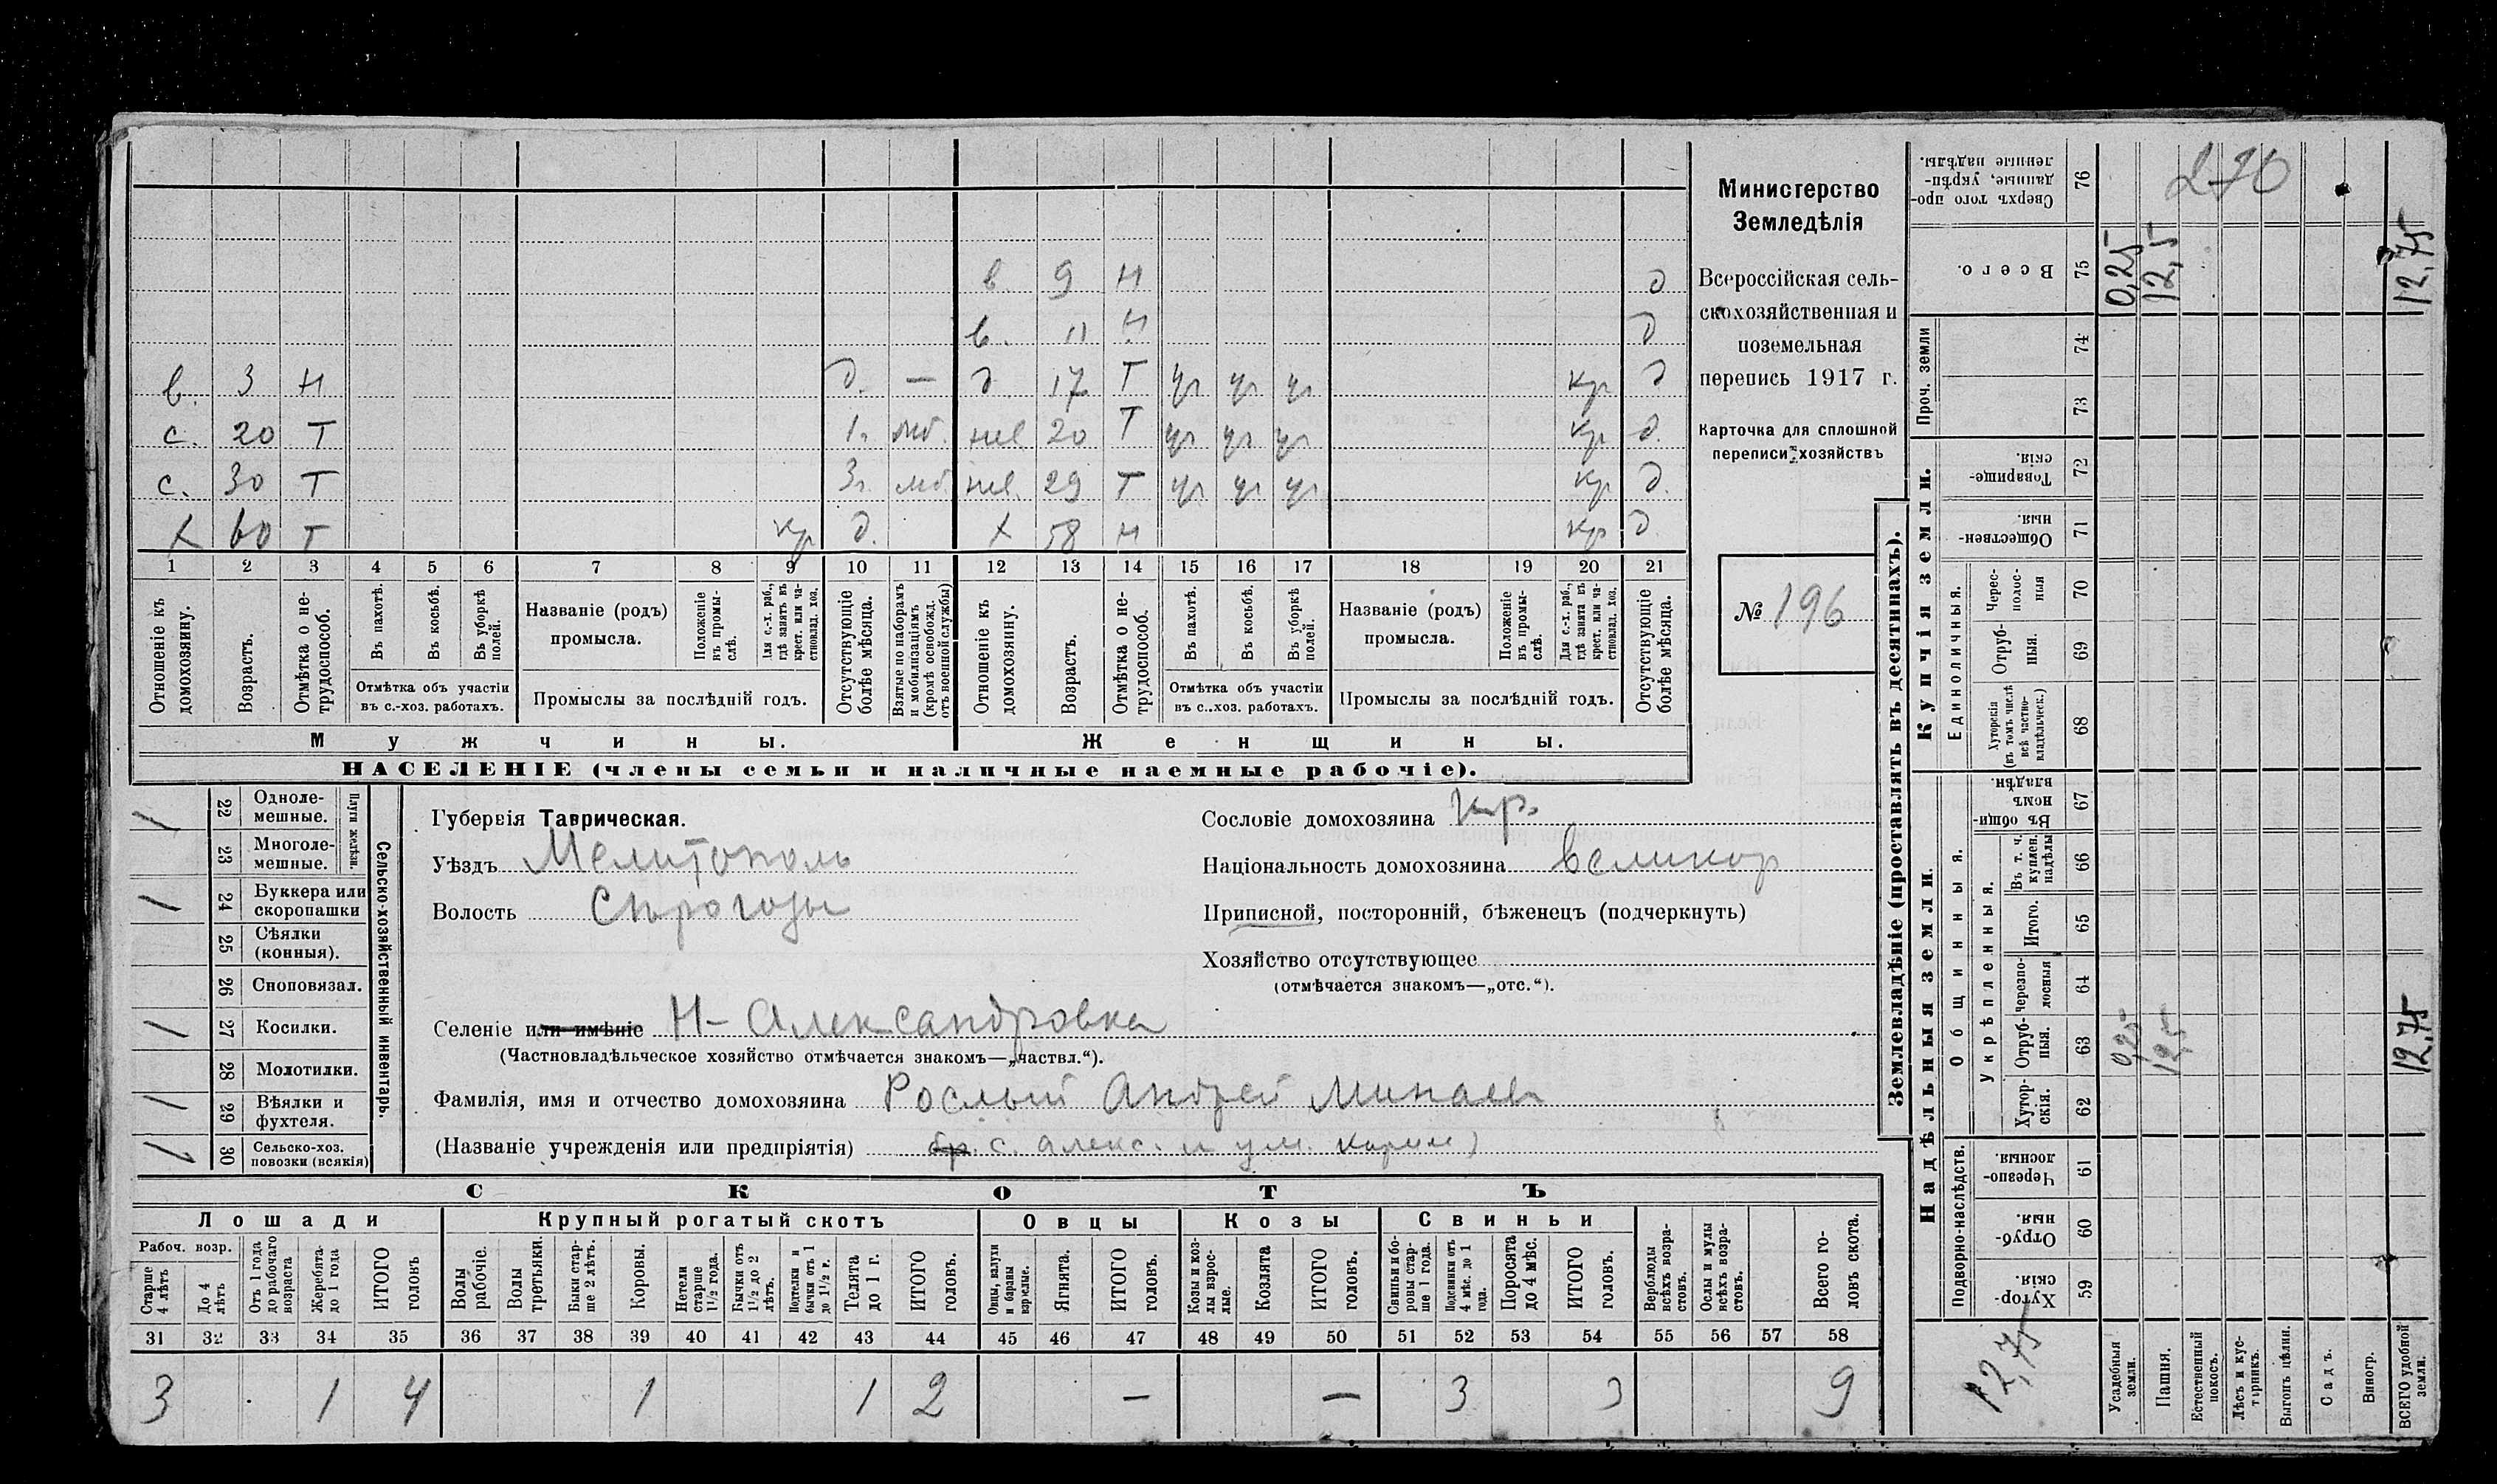 Министерство
Земледѣлія
Всероссійская сель-
скохозяйственная и
поземельная
перепись 1917 г.
Карточка для сплошной
переписи хозяйствъ
№ 196
в 9 Н д
в. 11 Н д
в. 3 Н д. — д. 17 Т ур ур ур кр д
с. 20 Т 1. мб. нев 20 Т ур ур ур кр д.
с. 30 Т 3г. мб. нев. 29 Т ур ур ур кр д.
Х 60 Т кр д. Х 58 Н кр д.
1 2 3 4 5 6 7 8 9 10 11 12 13 14 15 16 17 18 19 20 21
Отношеніе къ домохозяину.
Возрастъ.
Отмѣтка о не-трудоспособ.
Въ пахотѣ.
Въ косьбѣ.
Въ уборкѣ полей.
Отмѣтка объ участіи
въ с.-хоз. работахъ.
Названіе (родъ)
промысла.
Положеніе въ промы-слѣ.
Для с.-х. раб., гдѣ занятъ въ крест. или ча-стновлад. хоз.
Промыслы за послѣдній годъ.
Отсутствующіе болѣе мѣсяца.
Взятые по наборамъ и мобилизаціямъ (кромѣ освобожд. отъ военной службы)
Отношеніе къ домохозяину.
Возрастъ.
Отмѣтка о не-трудоспособ.
Въ пахотѣ.
Въ косьбѣ.
Въ уборкѣ полей.
Отмѣтка объ участіи
въ с..хоз. работахъ.
Названіе (родъ)
промысла.
Положеніе въ промы-слѣ.
Для с.-х. раб., гдѣ занята въ крест. или ча-стновлад. хоз.
Промыслы за послѣдній годъ.
Отсутствующіе болѣе мѣсяца.
Мужчины.
Женщины.
НАСЕЛЕНІЕ (члены семьи и наличные наемные рабочіе).
Сельско-хозяйственный инвентарь.
Плуги желѣзн.
1 22 Одноле-мешные.
23 Многоле-мешные.
1 24 Буккера или скоропашки
25 Сѣялки (конныя).
26 Сноповязал.
1 27 Косилки.
28 Молотилки.
1 29 Вѣялки и фухтеля.
1 30 Сельско-хоз. повозки (всякія)
Губернія Таврическая.
Уѣздъ Мелитополь
Волость Сѣрогозы
Селеніе или имѣніе Н-Александровка
(Частновладѣльческое хозяйство отмѣчается знакомъ—„частвл.“).
Фамилія, имя и отчество домохозяина Рослый Андрей Минаев
(Названіе учрежденія или предпріятія) бр. с. Алекс. и
Сословіе домохозяина кр.
Національность домохозяина великор
Приписной, посторонній, бѣженецъ (подчеркнуть)
Хозяйство отсутствующее
(отмѣчается знакомъ—„отс.“).
СКОТЪ
Лошади
Крупный рогатый скотъ
Овцы
Козы
Свиньи
Рабоч. возр.
Старше 4 лѣтъ
До 4 лѣтъ
Отъ 1 года до рабочаго возраста
Жеребята- до 1 года
ИТОГО головъ
Волы рабочіе.
Волы третьяки.
Быки стар-ше 2 лѣтъ.
Коровы.
Нетели старше 1½ года.
Бычки отъ 1½ до 2 лѣтъ.
Подтелки и бычки отъ 1 до 1½ г.
Телята до 1 г.
ИТОГО головъ.
Овцы, валухи и бараны взрослые.
Ягнята.
ИТОГО головъ.
Козы и коз-лы взрос-лые.
Козлята
ИТОГО головъ.
Свиньи и бо-ровы стар-ше 1 года.
Подсвинки отъ 4 мѣс. до 1 года.
Поросята до 4 мѣс.
ИТОГО головъ.
Верблюды всѣхъ возра-стовъ.
Ослы и мулы всѣхъ возра-стовъ.
Всего го-ловъ скота.
31 32 33 34 35 36 37 38 39 40 41 42 43 44 45 46 47 48 49 50 51 52 53 54 55 56 57 58
3 1 4 1 1 2 — — 3 3 9
Землевладѣніе (проставлять въ десятинахъ).
Купчія земли.
Надѣльныя земли.
Проч. земли
Единоличныя.
Общинныя.
Укрѣпленныя.
Подворно-наслѣдств.
Сверхъ того про-данные, укрѣп-ленные надѣлы. 76 270
Всего. 75 0,25 12,5 12,75
74
73
Товарище-скія. 72
Обществен-ныя. 71
Черес-полос-ныя 70
Отруб-ныя. 69
Хуторскія (въ томъ числѣ всѣ частно-владѣльческ.) 68
Въ общи-номъ владѣн. 67
Въ т. ч. куплен. надѣлы 66
Итого. 65
черезпо-лосныя 64
Отруб-ныя. 63 0,25 12,5 12,75
Хутор-скія. 62
Черезпо-лосныя. 61
Отруб-ныя. 60
Хутор-скія. 59
12,75
Усадебныя земли.
Пашня.
Естественный покосъ.
Лѣсъ и кус-тарникъ.
Выгонъ цѣлин.
Садъ.
Виногр.
ВСЕГО удобной земли.